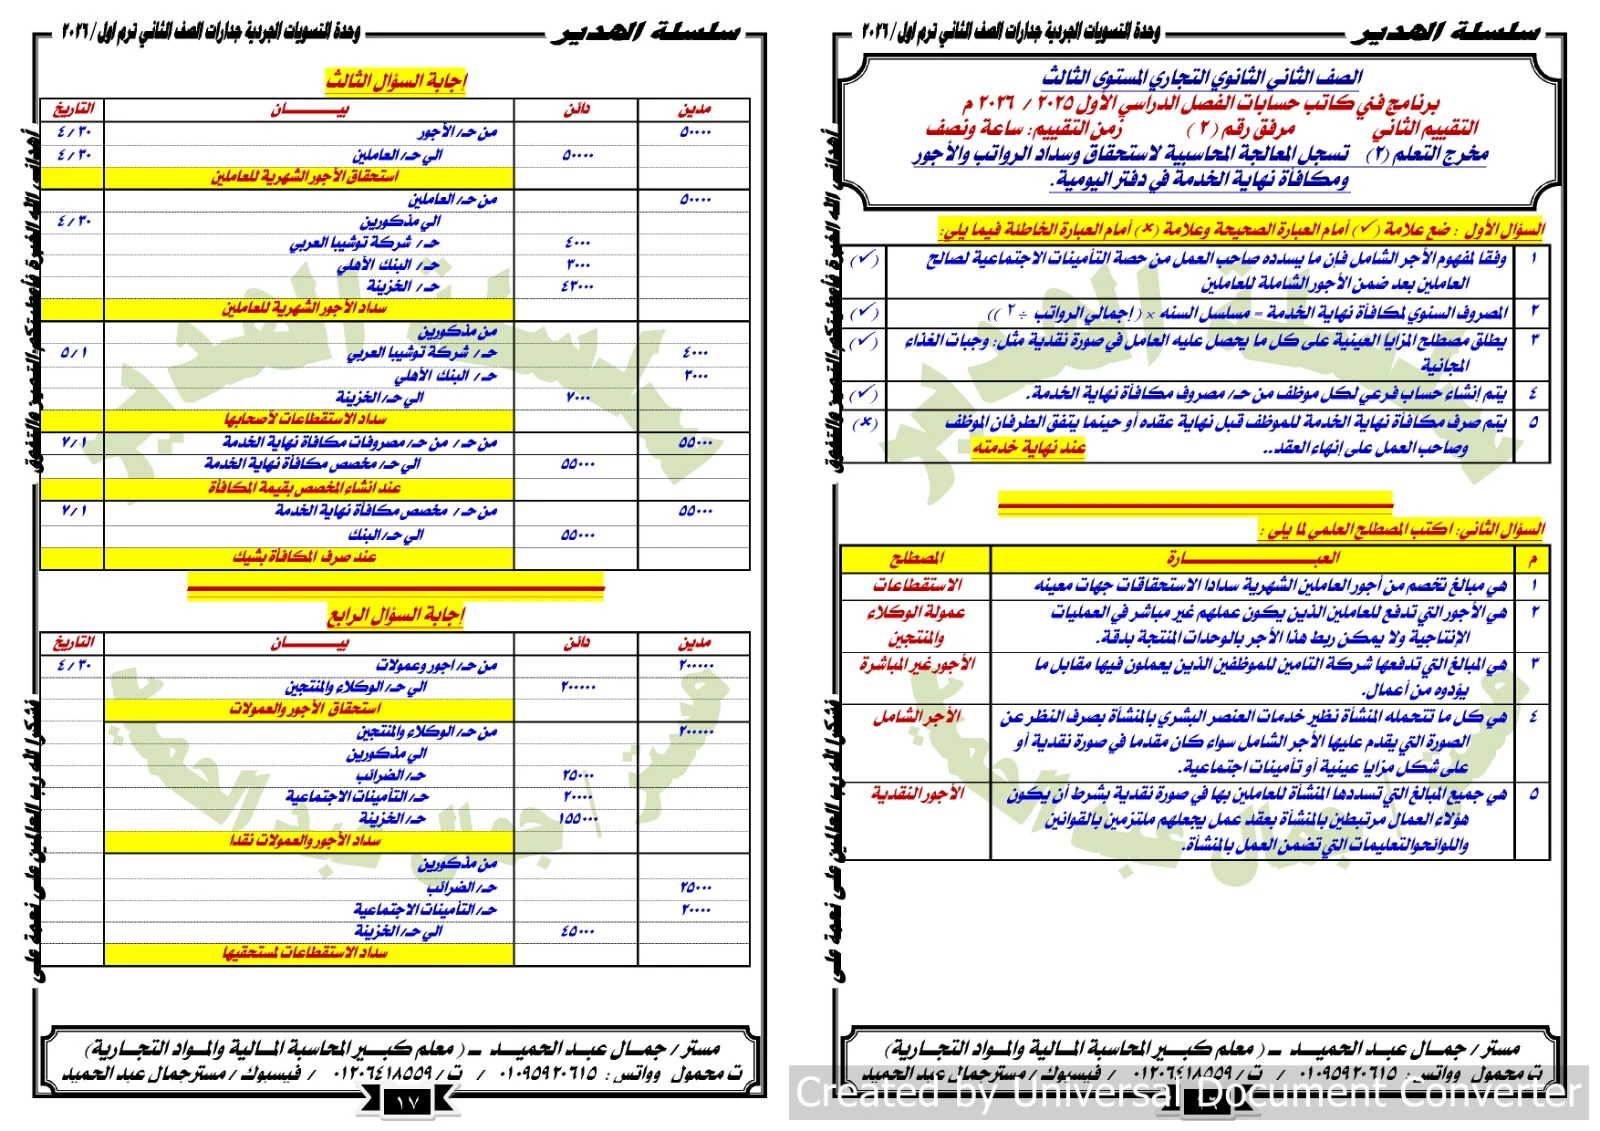 سلسلة الهدير
وحدة التسويات الجردية جدارات الصف الثاني ترم اول / ٢٠٢٦
الصف الثاني الثانوي التجاري المستوى الثالث
برنامج فني كاتب حسابات الفصل الدراسي الأول ٢٠٢٥ / ٢٠٢٦ م
التقييم الثاني مرفق رقم (٢) زمن التقييم: ساعة ونصف
مخرج التعلم (٢) تسجل المعالجة المحاسبية لاستحقاق وسداد الرواتب والأجور
ومكافأة نهاية الخدمة في دفتر اليومية.
السؤال الأول : ضع علامة (✓) أمام العبارة الصحيحة وعلامة (×) أمام العبارة الخاطئة فيما يلي:
١ وفقا لمفهوم الأجر الشامل فإن ما يسدده صاحب العمل من حصة التأمينات الاجتماعية لصالح (✓)
العاملين بعد ضمن الأجور الشاملة للعاملين
٢ المصروف السنوي لمكافأة نهاية الخدمة = مسلسل السنه × ( إجمالي الرواتب ÷ ٢ )) (✓)
٣ يطلق مصطلح المزايا العينية على كل ما يحصل عليه العامل في صورة نقدية مثل: وجبات الغذاء (✓)
المجانية
٤ يتم إنشاء حساب فرعي لكل موظف من حـ/ مصروف مكافأة نهاية الخدمة. (✓)
٥ يتم صرف مكافأة نهاية الخدمة للموظف قبل نهاية عقده أو حينما يتفق الطرفان الموظف (×)
وصاحب العمل على إنهاء العقد.. عند نهاية خدمته
السؤال الثاني: اكتب المصطلح العلمي لما يلي :
م العبــــارة المصطلح
١ هي مبالغ تخصم من أجور العاملين الشهرية سدادا الاستحقاقات جهات معينه الاستقطاعات
٢ هي الأجور التي تدفع للعاملين الذين يكون عملهم غير مباشر في العمليات عمولة الوكلاء
الإنتاجية ولا يمكن ربط هذا الأجر بالوحدات المنتجة بدقة. والمنتجين
٣ هي المبالغ التي تدفعها شركة التامين للموظفين الذين يعملون فيها مقابل ما الأجور غير المباشرة
يؤدوه من أعمال.
٤ هي كل ما تتحمله المنشأة نظير خدمات العنصر البشري بالمنشأة بصرف النظر عن الأجر الشامل
الصورة التي يقدم عليها الأجر الشامل سواء كان مقدما في صورة نقدية أو
على شكل مزايا عينية أو تأمينات اجتماعية.
٥ هي جميع المبالغ التي تسددها المنشأة للعاملين بها في صورة نقدية بشرط أن يكون الأجور النقدية
هؤلاء العمال مرتبطين بالمنشأة بعقد عمل يجعلهم ملتزمين بالقوانين
واللوائح والتعليمات التي تضمن العمل بالمنشأة.
مستر / جمـال عبـد الحميـد ـ ( معلم كبيـر المحاسبة المـالية والمـواد التجـارية)
ت محمول وواتس : ٠١٠٩٥٩٢٠٦١٥ / ت/ ٠١٢٠٦٤١٨٥٥٩ / فيسبوك / مسترجمال عبد الحميد
Created by Universal Document Converter
سلسلة الهدير
وحدة التسويات الجردية جدارات الصف الثاني ترم اول / ٢٠٢٦
إجابة السؤال الثالث
مدين دائن بيــــان التاريخ
٥٠٠٠٠ من حـ/ الأجور ٤/٣٠
٥٠٠٠٠ الي حـ/ العاملين ٤/٣٠
استحقاق الأجور الشهرية للعاملين
٥٠٠٠٠ من حـ/ العاملين
الي مذكورين ٤/٣٠
٤٠٠٠ حـ/ شركة توشيبا العربي
٣٠٠٠ حـ/ البنك الأهلي
٤٣٠٠٠ حـ/ الخزينة
سداد الأجور الشهرية للعاملين
من مذكورين
٤٠٠٠ حـ/ شركة توشيبا العربي ٥/١
٣٠٠٠ حـ/ البنك الأهلي
٧٠٠٠ الي حـ/ الخزينة
سداد الاستقطاعات لأصحابها
٥٥٠٠٠ من حـ/ من حـ/ مصروفات مكافاة نهاية الخدمة ٧/١
٥٥٠٠٠ الي حـ/ مخصص مكافأة نهاية الخدمة
عند انشاء المخصص بقيمة المكافأة
٥٥٠٠٠ من حـ/ مخصص مكافأة نهاية الخدمة ٧/١
٥٥٠٠٠ الي حـ/ البنك
عند صرف المكافأة بشيك
إجابة السؤال الرابع
مدين دائن بيــــان التاريخ
٢٠٠٠٠٠ من حـ/ اجور وعمولات ٤/٣٠
٢٠٠٠٠٠ الي حـ/ الوكلاء والمنتجين
استحقاق الأجور والعمولات
٢٠٠٠٠٠ من حـ/ الوكلاء والمنتجين
الي مذكورين
٢٥٠٠٠ حـ/ الضرائب
٢٠٠٠٠ حـ/ التأمينات الاجتماعية
١٥٥٠٠٠ حـ/ الخزينة
سداد الأجور والعمولات نقدا
من مذكورين
٢٥٠٠٠ حـ/ الضرائب
٢٠٠٠٠ حـ/ التأمينات الاجتماعية
٤٥٠٠٠ الي حـ/ الخزينة
سداد الاستقطاعات لمستحقيها
مستر / جمـال عبـد الحميـد ـ ( معلم كبيـر المحاسبة المـالية والمـواد التجـارية)
ت محمول وواتس : ٠١٠٩٥٩٢٠٦١٥ / ت/ ٠١٢٠٦٤١٨٥٥٩ / فيسبوك / مسترجمال عبد الحميد
١٧